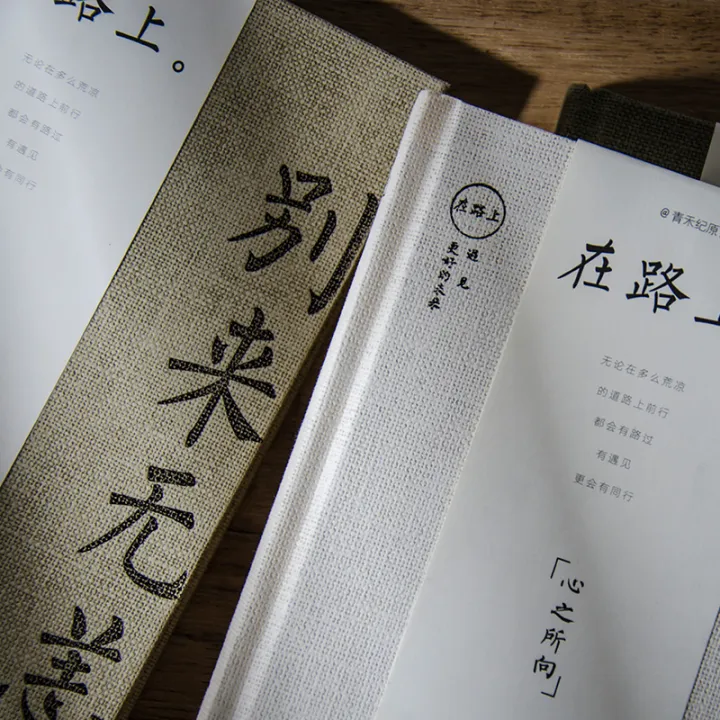 路上。
无论在多么荒凉
的道路上前行
都会有路过
有遇见
会有同行
别来无恙
在路上
遇见
更好的未来
@青禾纪原
在路上
无论在多么荒凉
的道路上前行
都会有路过
有遇见
更会有同行
「心之所向」